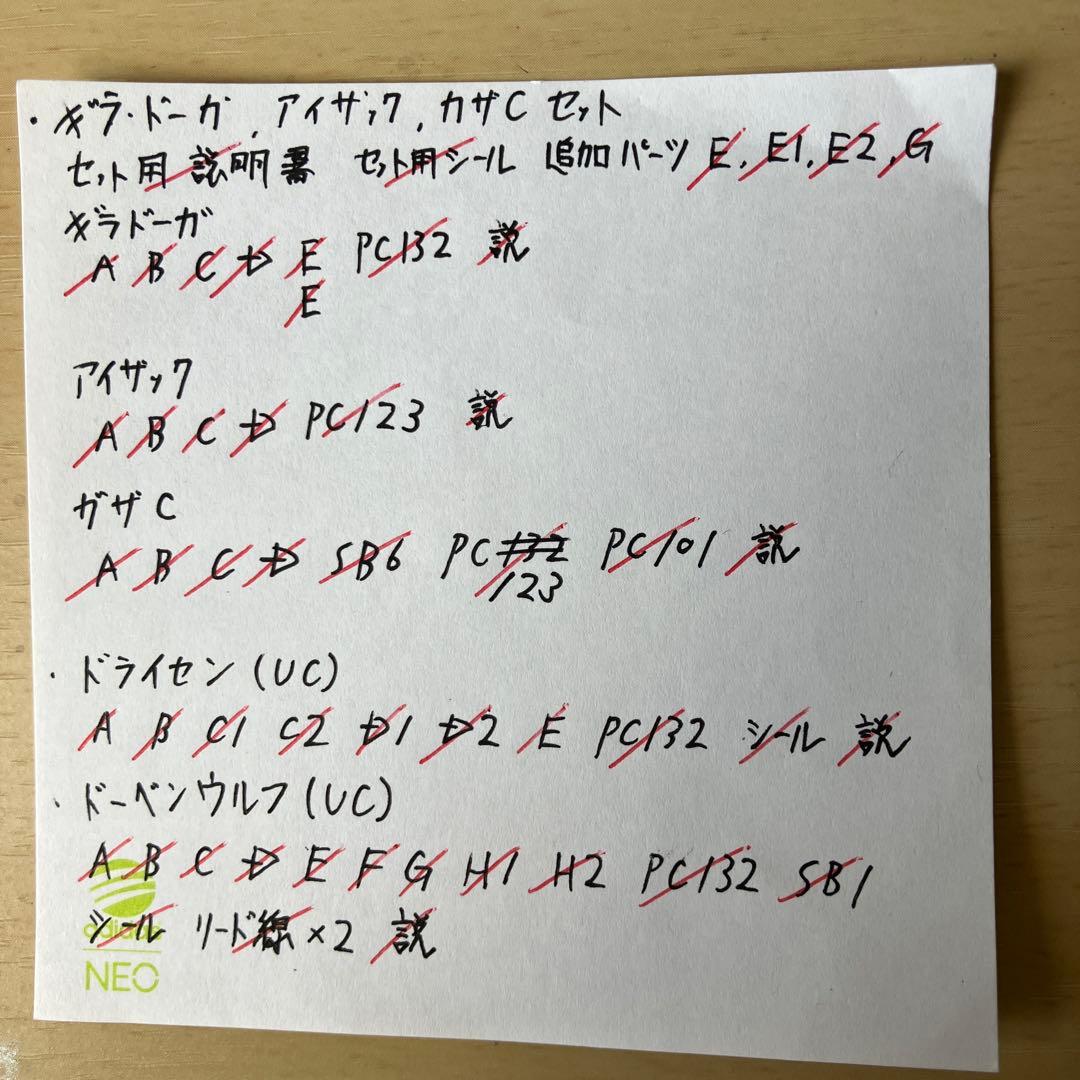 ・ギラ・ドーガ, アイザック, ガザC セット
セット用 説明書 セット用シール 追加パーツ E, E1, E2, G
ギラドーガ
A B C D E PC132 説
E
アイザック
A B C D PC123 説
ガザC
A B C D SB6 PC132 PC101 説
123
・ドライセン(UC)
A B C1 C2 D1 D2 E PC132 シール 説
・ドーベンウルフ(UC)
A B C D E F G H1 H2 PC132 SB1
シール リード線×2 説
adidas
NEO